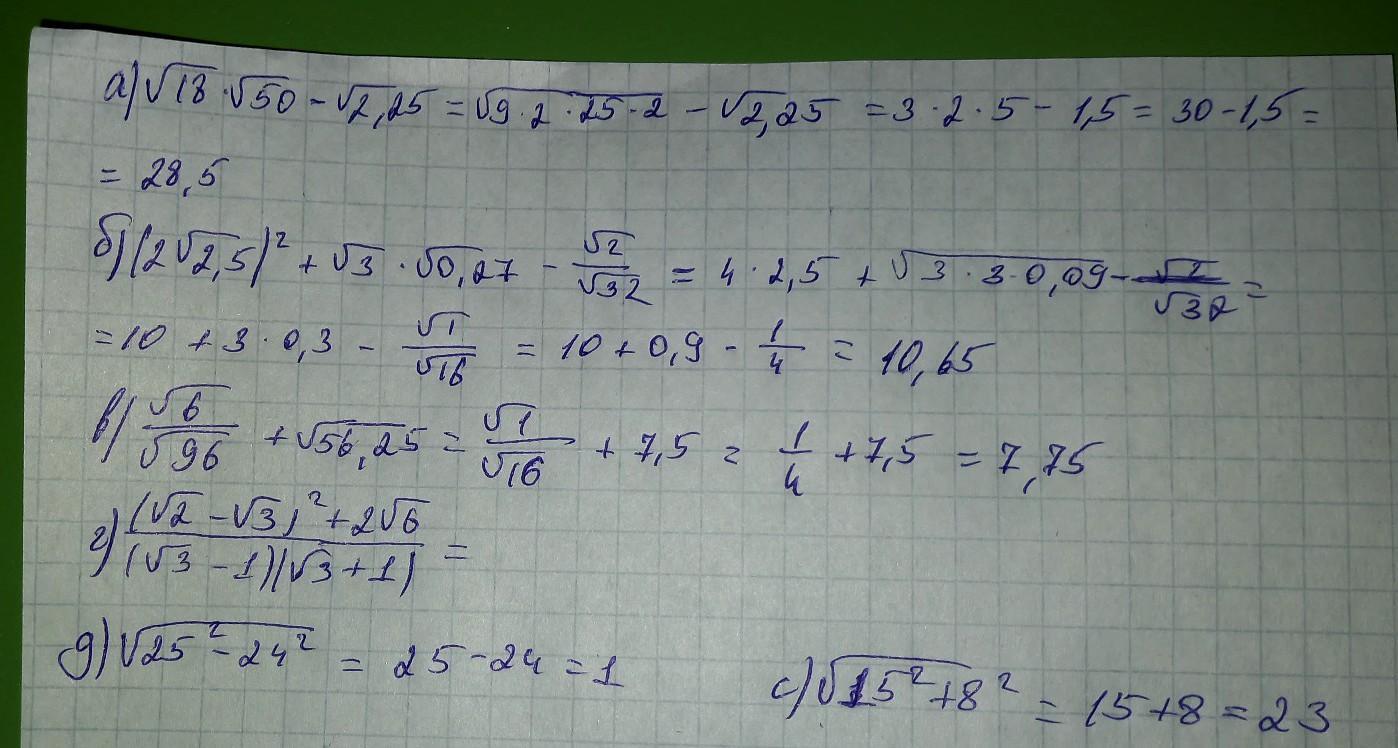 а) √18 · √50 - √2,25 = √9·2·25·2 - √2,25 = 3·2·5 - 1,5 = 30 - 1,5 =
= 28,5
б) (2√2,5)² + √3 · √0,27 - √2/√32 = 4 · 2,5 + √3·3·0,09 - √2/√32 =
= 10 + 3 · 0,3 - √1/√16 = 10 + 0,9 - 1/4 = 10,65
в) √6/√96 + √56,25 = √1/√16 + 7,5 = 1/4 + 7,5 = 7,75
г) (√2 - √3)² + 2√6/(√3 - 1)(√3 + 1) =
д) √25² - 24² = 25 - 24 = 1
с) √15² + 8² = 15 + 8 = 23